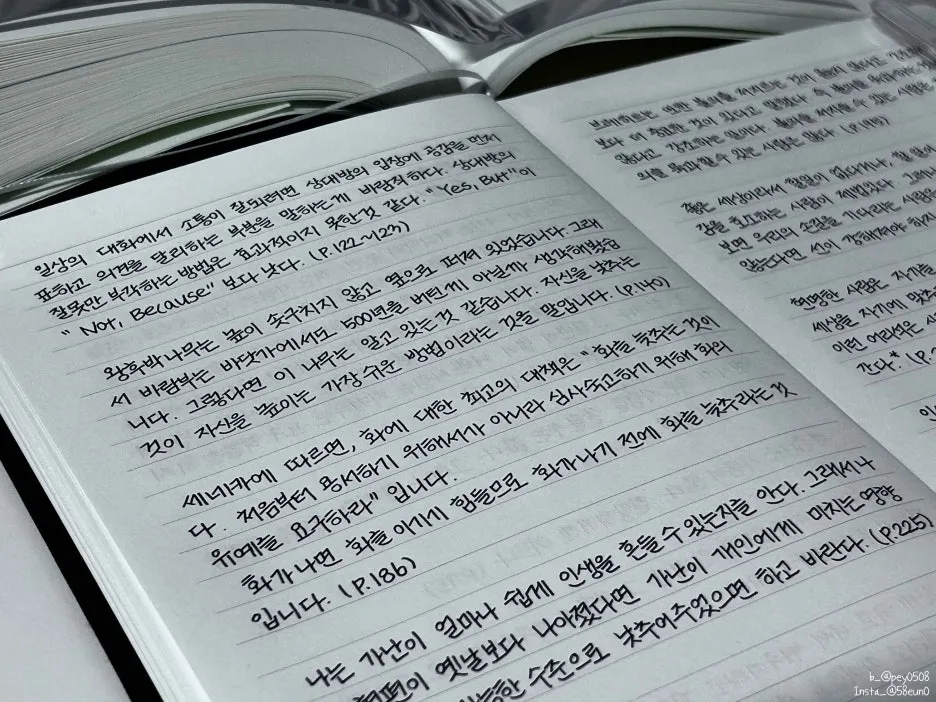 일상의 대화에서 소통이 잘되려면 상대방의 입장에 공감을 먼저
표하고 의견을 달리하는 부분을 말하는게 바람직하다. 상대방의
잘못만 부각하는 방법은 효과적이지 못한것 같다. "Yes, But"이
"Not, Because" 보다 낫다. (P.122~123)
왕후박나무는 높이 솟구치지 않고 옆으로 퍼져 있었습니다. 그래
서 바람부는 바닷가에서도 500년을 버틴게 아닐까 생각해봤습
니다. 그렇다면 이 나무는 알고 있는 것 같습니다. 자신을 낮추는
것이 자신을 높이는 가장 쉬운 방법이라는 것을 말입니다. (P.140)
세네카에 따르면, 화에 대한 최고의 대책은 "화를 늦추는 것이
다. 처음부터 용서하기 위해서가 아니라 심사숙고하기 위해 화의
유예를 요구하라" 입니다.
화가나면 화를 이기기 힘들므로 화가나기 전에 화를 늦추라는 것
입니다. (P.186)
나는 가난이 얼마나 쉽게 인생을 흔들 수 있는지를 안다. 그래서 나
옛날보다 나아졌다면 가난이 개인에게 미치는 영향
수준으로 낮추어주었으면 하고 바란다. (P.225)
보다 더 중요한 것이 있다고 말했다.
없다고 강조하는 말이다.
있는 사람은 없다. (P.195)
좋은 세상이라서 할일이 없다거나,
사람이 제법있다. 그러나
보면 우리의 손길을 기다리는 사람들
않는다면 선이 강해져야 하지
현명한 사람은 자기를
세상을 자기에 맞추
이런 어리석은 사
간다."
b_@pey0508
Insta_@58eun0